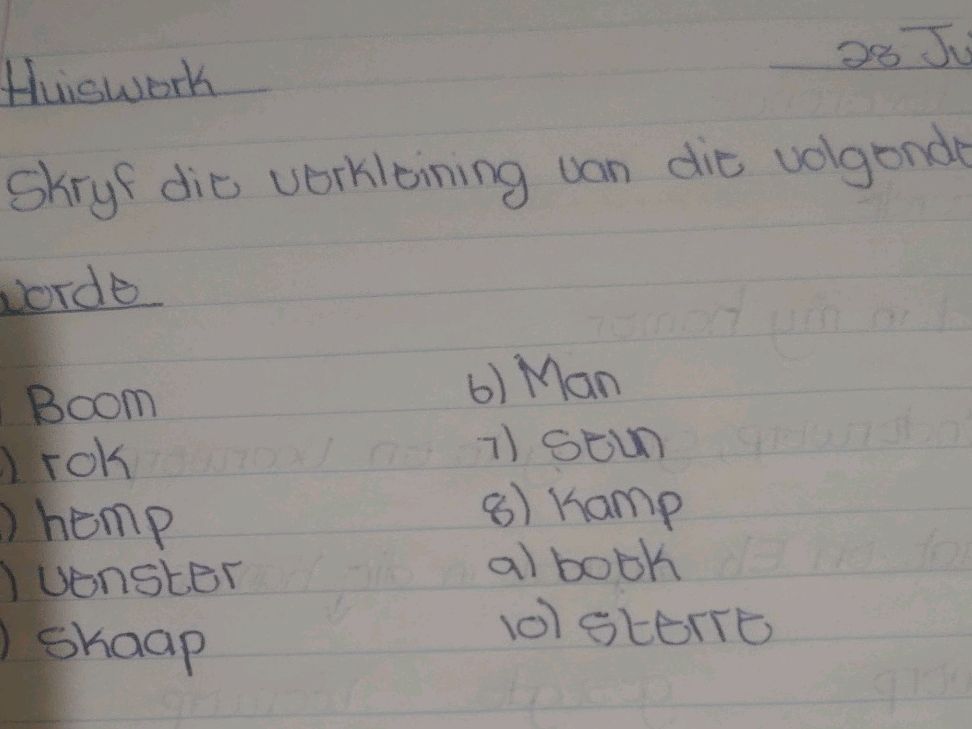 Huiswerk 28 Ju
Skryf die verkleining van die volgende
worde
Boom 6) Man
) rok 7) Seun
) hemp 8) Kamp
) venster 9) boek
) skaap 10) sterre